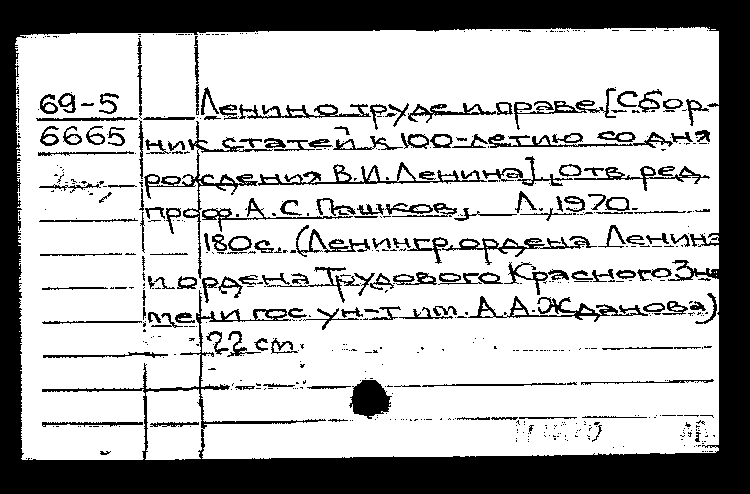 69-5 Ленин о труде и праве. [Сбор-
6665 ник статей к 100-летию со дня
рождения В.И. Ленина]. [Отв. ред.
проф. А.С. Пашков]. Л., 1970.
180с. (Ленингр. ордена Ленина
и ордена Трудового Красного Зна
мени гос. ун-т им. А.А. Жданова)
22 см.